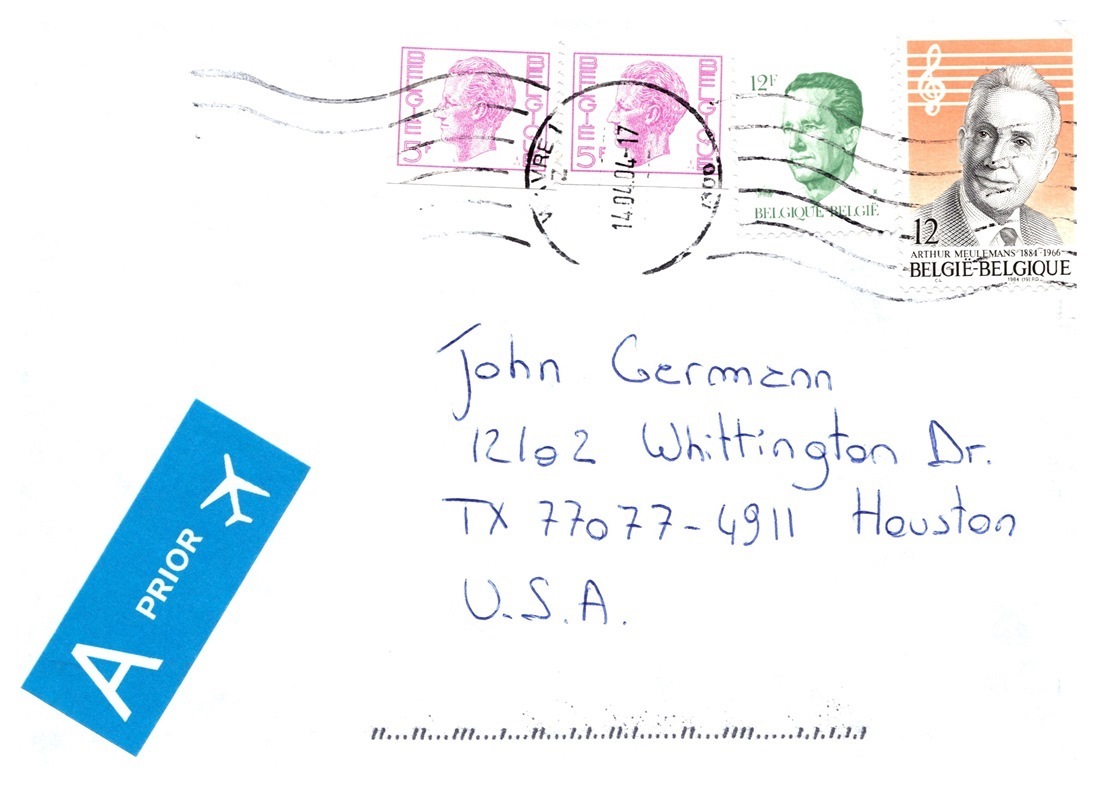 BELGIE BELGIQUE
5F
BELGIE BELGIQUE
5F
12F
BELGIQUE BELGIË
12
ARTHUR MEULEMANS 1884-1966
BELGIË-BELGIQUE
14.04.04-17
John Germann
12102 Whittington Dr.
TX 77077-4911 Houston
U.S.A.
A PRIOR